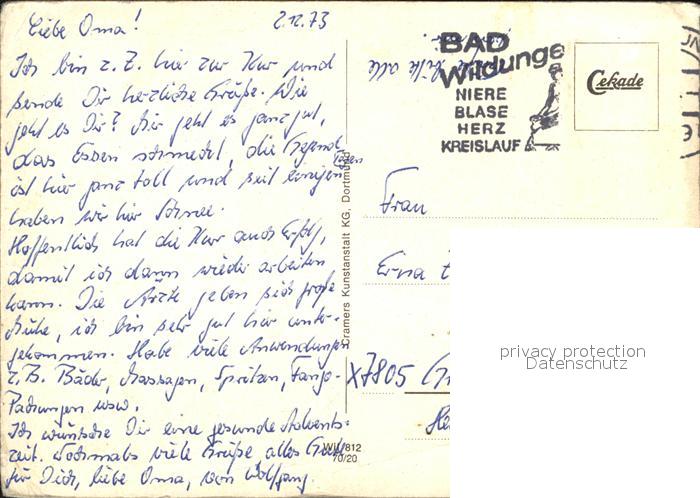 Liebe Oma!
2.12.73
Ich bin z. Z. hier zur Kur und
sende Dir herzliche Grüße. Wie
geht es Dir? Mir geht es ganz gut,
das Essen schmeckt, die Gegend
ist hier ganz toll und seit einigen Tagen
haben wir hier Schnee.
Hoffentlich hat die Kur auch Erfolg,
damit ich dann wieder arbeiten
kann. Die Ärzte geben sich große
Mühe, ich bin sehr gut hier unter-
gekommen. Habe viele Anwendungen
z.B. Bäder, Massagen, Spritzen, Fango-
Packungen usw.
Ich wünsche Dir eine gesunde Advents-
zeit. Nochmals viele Grüße alles Gute
für Dich, liebe Oma, von Wolfgang.
Cramers Kunstanstalt KG, Dortmund
Wil/812
70/20
BAD
Wildungen
NIERE
BLASE
HERZ
KREISLAUF
Cekade
Frau
Erna
X7805
privacy protection
Datenschutz